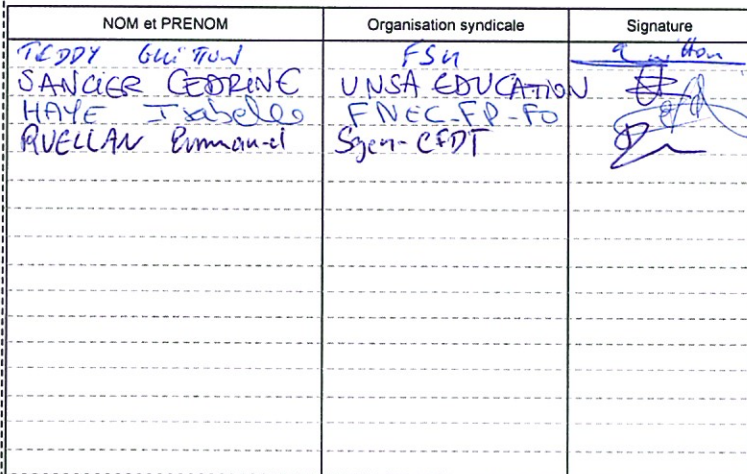 NOM et PRENOM Organisation syndicale Signature
TEDDY GUITTON FSU Guitton
SANGER CEDRINE UNSA EDUCATION
HAYE Isabelle FNEC-FP-FO
QUELLAN Emmanuel Sgen-CFDT